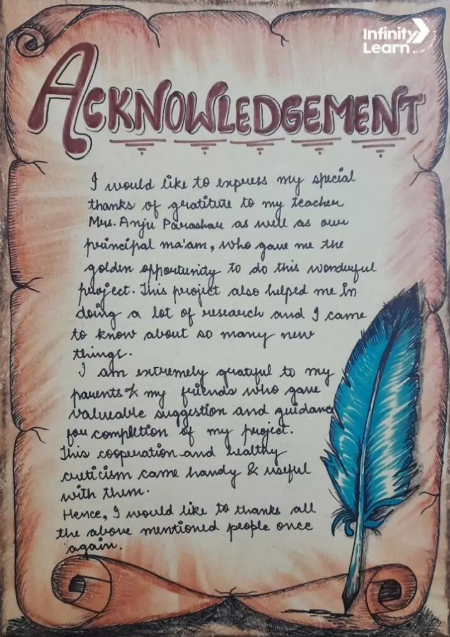 Infinity
Learn
ACKNOWLEDGEMENT
I would like to express my special
thanks of gratitute to my teacher
Mrs. Anju Parashar as well as our
principal ma'am, who gave me the
golden opportunity to do this wonderful
project. This project also helped me In
doing a lot of research and I came
to know about so many new
things.
I am extremely grateful to my
parents & my friends who gave
valuable suggestion and guidance
for completion of my project.
This cooperation and healthy
criticism came handy & useful
with them.
Hence, I would like to thanks all
the above mentioned people once
again.